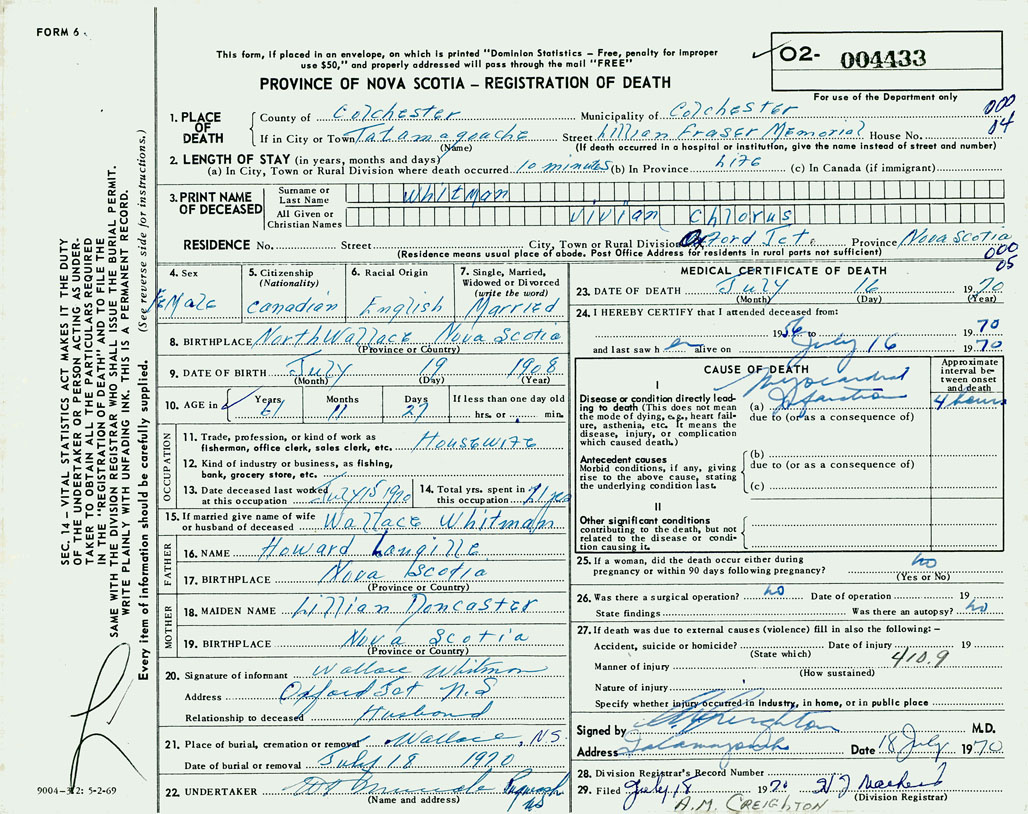 FORM 6
This form, if placed in an envelope, on which is printed "Dominion Statistics – Free, penalty for improper
use $50," and properly addressed will pass through the mail "FREE"
PROVINCE OF NOVA SCOTIA – REGISTRATION OF DEATH
02- 004433
For use of the Department only
1. PLACE OF DEATH
County of Colchester Municipality of Colchester 000
If in City or Town Tatamagouche Street Lillian Fraser Memorial House No. 04
(Name) (If death occurred in a hospital or institution, give the name instead of street and number)
2. LENGTH OF STAY (in years, months and days)
(a) In City, Town or Rural Division where death occurred 10 minutes (b) In Province Life (c) In Canada (if immigrant)
3. PRINT NAME OF DECEASED
Surname or Last Name Whitman
All Given or Christian Names Vivian Chlorus
RESIDENCE No. Street City, Town or Rural Division Oxford Jct Province Nova Scotia
(Residence means usual place of abode. Post Office Address for residents in rural parts not sufficient) 000
05
4. Sex
Female
5. Citizenship
(Nationality)
Canadian
6. Racial Origin
English
7. Single, Married,
Widowed or Divorced
(write the word)
Married
8. BIRTHPLACE North Wallace Nova Scotia
(Province or Country)
9. DATE OF BIRTH July 19 1908
(Month) (Day) (Year)
10. AGE in Years Months Days If less than one day old
61 11 27 hrs. or min.
OCCUPATION
11. Trade, profession, or kind of work as
fisherman, office clerk, sales clerk, etc. Housewife
12. Kind of industry or business, as fishing,
bank, grocery store, etc.
13. Date deceased last worked
at this occupation July 15 1970
14. Total yrs. spent in
this occupation
15. If married give name of wife
or husband of deceased Wallace Whitman
FATHER
16. NAME Howard Langille
17. BIRTHPLACE Nova Scotia
(Province or Country)
MOTHER
18. MAIDEN NAME Lillian Doncaster
19. BIRTHPLACE Nova Scotia
(Province or Country)
20. Signature of informant Wallace Whitman
Address Oxford Jct N.S
Relationship to deceased Husband
21. Place of burial, cremation or removal Wallace, N.S.
Date of burial or removal July 18 1970
22. UNDERTAKER Pugwash NS
(Name and address)
MEDICAL CERTIFICATE OF DEATH
23. DATE OF DEATH July 16 1970
(Month) (Day) (Year)
24. I HEREBY CERTIFY that I attended deceased from:
1956 to 1970
and last saw her alive on July 16 1970
CAUSE OF DEATH
Approximate
interval be-
tween onset
and death
I
Disease or condition directly lead-
ing to death (This does not mean
the mode of dying, e.g., heart fail-
ure, asthenia, etc. It means the
disease, injury, or complication
which caused death.)
(a) Myocardial Infarction 4 hours
due to (or as a consequence of)
Antecedent causes
Morbid conditions, if any, giving
rise to the above cause, stating
the underlying condition last.
(b)
due to (or as a consequence of)
(c)
II
Other significant conditions
contributing to the death, but not
related to the disease or condi-
tion causing it.
25. If a woman, did the death occur either during
pregnancy or within 90 days following pregnancy? no
(Yes or No)
26. Was there a surgical operation? no Date of operation 19
State findings Was there an autopsy? no
27. If death was due to external causes (violence) fill in also the following: –
Accident, suicide or homicide? Date of injury 19
(State which) 410.9
Manner of injury
(How sustained)
Nature of injury
Specify whether injury occurred in Industry, in home, or in public place
Signed by Creighton M.D.
Address Tatamagouche Date 18 July 1970
28. Division Registrar's Record Number
29. Filed July 18 1970
(Division Registrar)
A.M. CREIGHTON
SEC. 14 – VITAL STATISTICS ACT MAKES IT THE DUTY
OF THE UNDERTAKER OR PERSON ACTING AS UNDER-
TAKER TO OBTAIN ALL THE PARTICULARS REQUIRED
IN THE "REGISTRATION OF DEATH" AND TO FILE THE
SAME WITH THE DIVISION REGISTRAR WHO SHALL ISSUE THE BURIAL PERMIT.
WRITE PLAINLY WITH UNFADING INK. THIS IS A PERMANENT RECORD.
Every item of information should be carefully supplied. (See reverse side for instructions.)
9004-312: 5-2-69